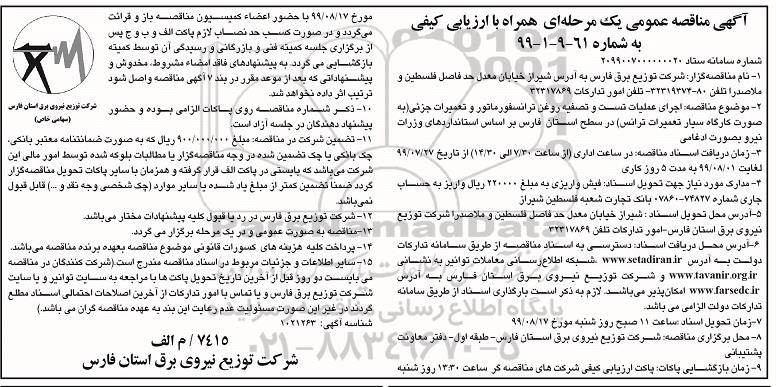 آگهی مناقصه عمومی یک مرحله‌ای همراه با ارزیابی کیفی
به شماره ۶۱-۹-۱-۹۹
شماره سامانه ستاد ۲۰۹۹۰۰۷۰۰۰۰۰۰۰۲۰
۱- نام مناقصه‌گزار: شرکت توزیع برق فارس به آدرس شیراز خیابان معدل حد فاصل فلسطین و
ملاصدرا تلفن ۸۰-۳۲۳۱۹۳۷۴- تلفن امور تدارکات ۳۲۳۱۷۸۶۹
۲- موضوع مناقصه: اجرای عملیات تست و تصفیه روغن ترانسفورماتور و تعمیرات جزئی(به
صورت کارگاه سیار تعمیرات ترانس) در سطح استان فارس بر اساس استانداردهای وزارت
نیرو بصورت ادغامی
۳- زمان دریافت اسناد مناقصه: در ساعت اداری (از ساعت ۷/۳۰ الی ۱۴/۳۰) از تاریخ ۹۹/۰۷/۲۷
لغایت ۹۹/۰۸/۰۱ به مدت ۵ روز کاری
۴- مدارک مورد نیاز جهت تحویل اسناد: فیش واریزی به مبلغ ۲۲۰۰۰۰ ریال واریز به حساب
جاری شماره ۷۴۸۲۷-۰۷۸۶۰ بانک تجارت شعبه فلسطین شیراز
۵-آدرس محل تحویل اسناد: شیراز خیابان معدل حد فاصل فلسطین و ملاصدرا شرکت توزیع
نیروی برق استان فارس-امور تدارکات تلفن ۳۲۳۱۷۸۶۹
۶-آدرس محل دریافت اسناد: دسترسی به اسناد مناقصه از طریق سامانه تدارکات
دولت به آدرس www.setadiran.ir ،شبکه اطلاع‌رسانی معاملات توانیر به نشانی
www.tavanir.org.ir و شرکت توزیع نیروی برق استان فارس به آدرس
www.farsedc.ir امکان‌پذیر می‌باشد. لازم به ذکر است بارگذاری اسناد از طریق سامانه
تدارکات دولت الزامی می باشد.
۷-زمان تحویل اسناد: ساعت ۱۱ صبح روز شنبه مورخ ۹۹/۰۸/۱۷
۸-محل برگزاری مناقصه: شرکت توزیع نیروی برق استان فارس- طبقه اول- دفتر معاونت
پشتیبانی
۹-زمان بازگشایی پاکات: پاکت ارزیابی کیفی شرکت های مناقصه گر ساعت ۱۳:۳۰ روز شنبه
مورخ ۹۹/۰۸/۱۷ با حضور اعضاء کمیسیون مناقصه باز و قرائت
می‌گردد و در صورت کسب حد نصاب لازم پاکت الف و ب و ج پس
از برگزاری جلسه کمیته فنی و بازرگانی و رسیدگی آن توسط کمیته
بازگشایی می گردد. به پیشنهادهای فاقد امضاء مشروط، مخدوش و
پیشنهاداتی که بعد از موعد مقرر در بند ۷ آگهی مناقصه واصل شود
ترتیب اثر داده نخواهد شد.
۱۰- ذکر شماره مناقصه روی پاکات الزامی بوده و حضور
پیشنهاد دهندگان در جلسه آزاد است.
۱۱- تضمین شرکت در مناقصه: مبلغ ۹۰۰/۰۰۰/۰۰۰ ریال که به صورت ضمانتنامه معتبر بانکی،
چک بانکی یا چک تضمین شده در وجه مناقصه‌گزار یا مطالبات بلوکه شده توسط امور مالی این
شرکت می‌باشد که بایستی در پاکت الف قرار گرفته و همزمان با سایر پاکات تحویل مناقصه‌گزار
گردد ضمناً تضمین کمتر از مبلغ یاد شده یا سایر موارد (چک شخصی وجه نقد و ...) قابل قبول
نمی‌باشد.
۱۲- شرکت توزیع برق فارس در رد یا قبول کلیه پیشنهادات مختار می‌باشد.
۱۳-مناقصه به صورت عمومی و در یک مرحله برگزار می گردد.
۱۴- پرداخت کلیه هزینه های کسورات قانونی موضوع مناقصه بعهده برنده مناقصه می‌باشد.
۱۵-سایر اطلاعات و جزئیات مربوط در اسناد مناقصه مندرج است.(شرکت کنندگان در مناقصه
می بایست دو روز قبل از آخرین تاریخ تحویل پاکت ها با مراجعه به سایت توانیر و یا سایت
شرکت توزیع برق فارس و یا تماس با امور تدارکات از آخرین اصلاحات احتمالی اسناد مطلع
گردند در غیر این صورت مسئولیت عدم رعایت این بند به عهده مناقصه گران می باشد.)
شناسه آگهی: ۱۰۲۱۲۶۳
۷۴۱۵ / م الف
شرکت توزیع نیروی برق استان فارس
شرکت توزیع نیروی برق استان فارس
(سهامی خاص)
پایگاه اطلاع رسانی مناقصه و مزایده
۰۲۱-۸۸۳۴۹۶۷۰-۵